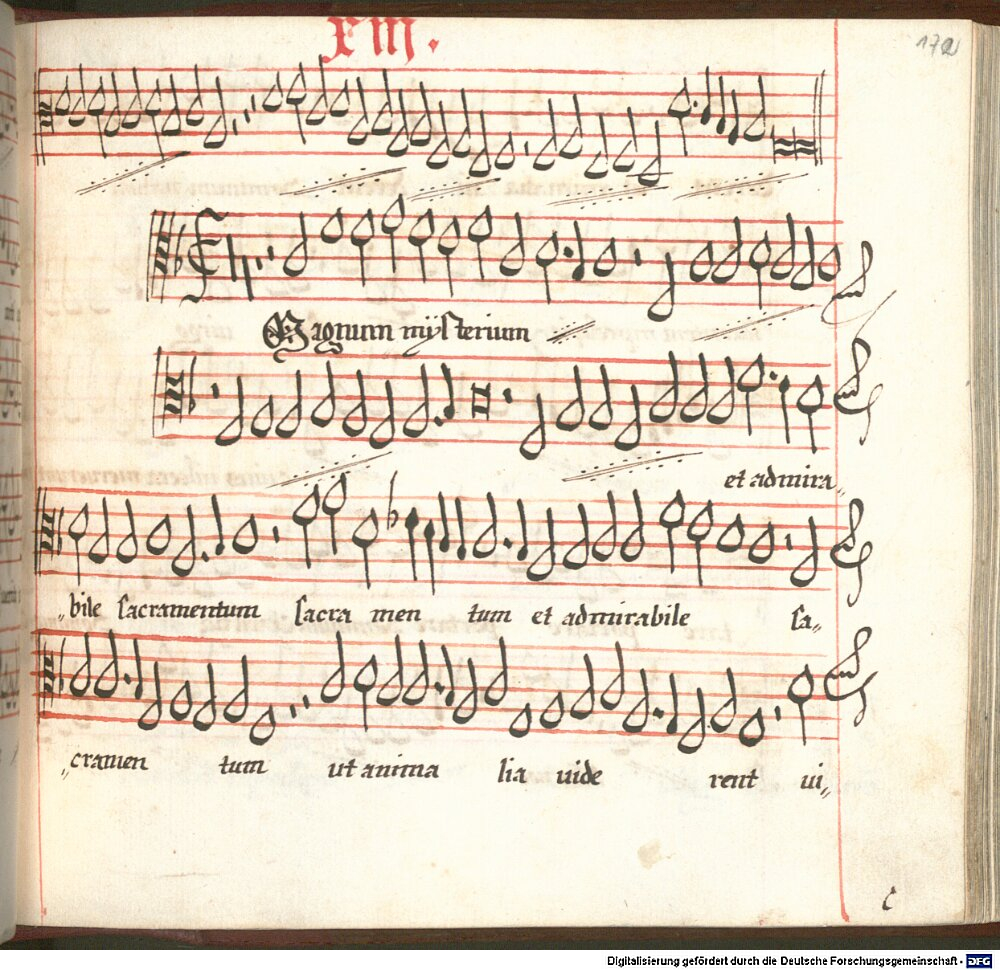 XIII.
172
Magnum mysterium
et admira„
„bile sacramentum sacra men tum et admirabile sa„
„cramen tum ut anima lia uide rent ui„
C
Digitalisierung gefördert durch die Deutsche Forschungsgemeinschaft - DFG